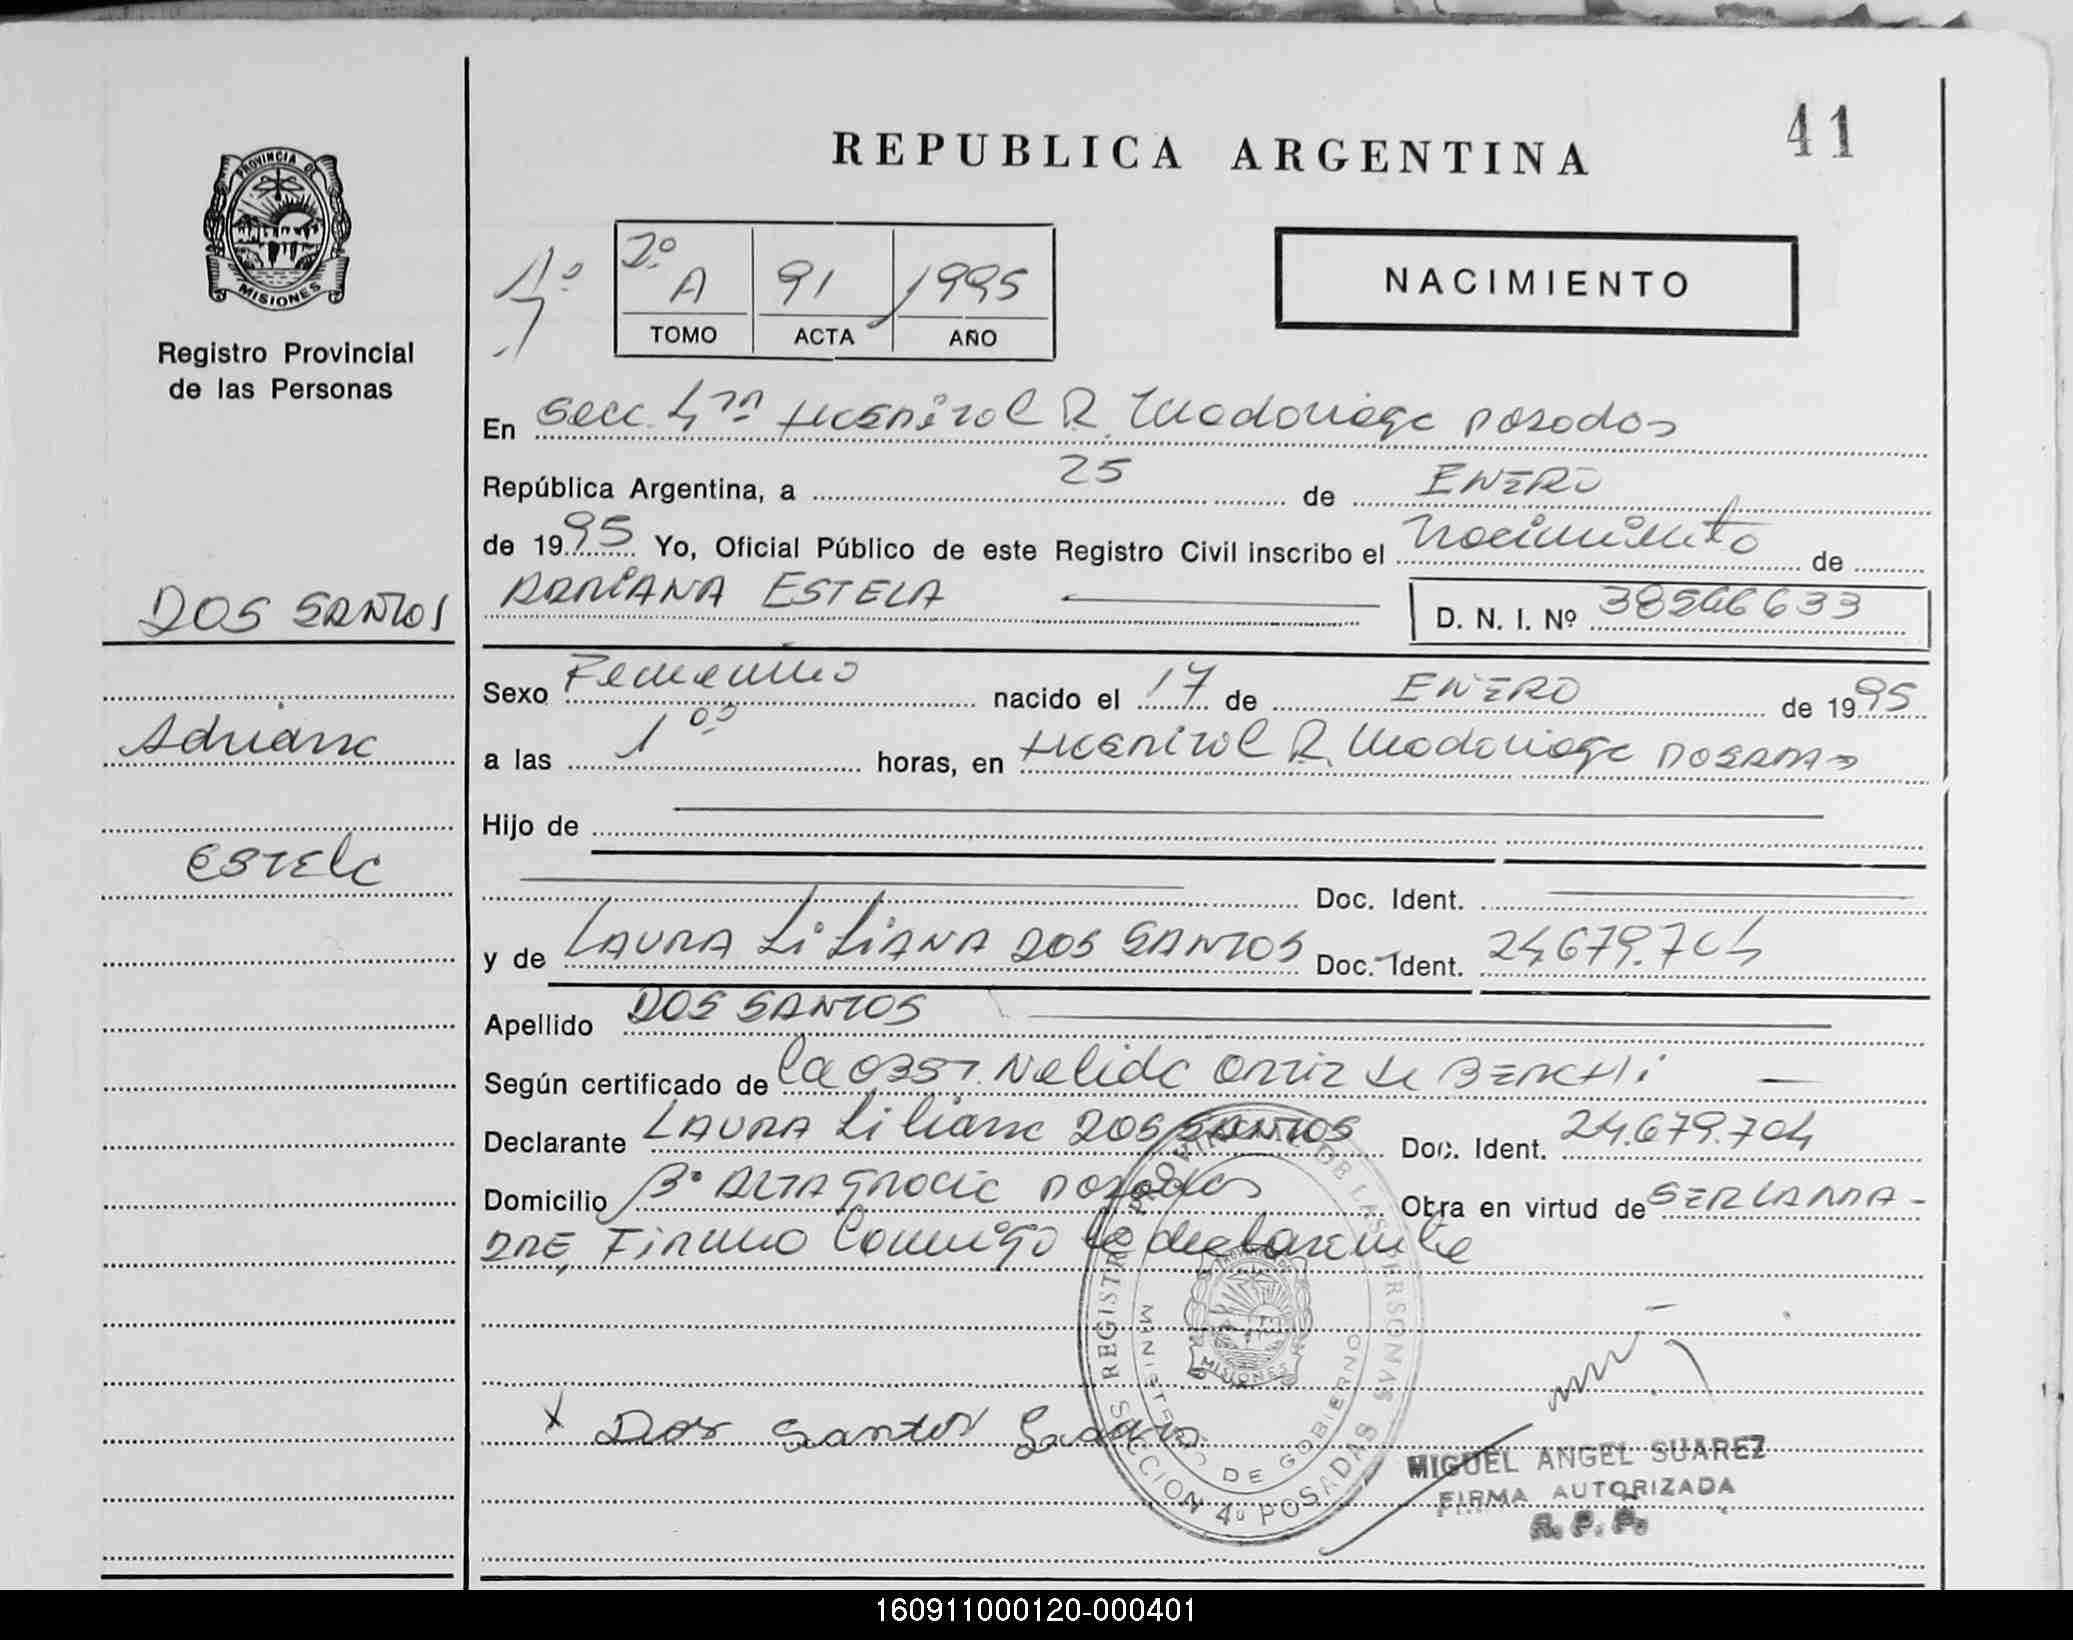 41
REPUBLICA ARGENTINA
PROVINCIA DE
MISIONES
Registro Provincial
de las Personas
2º A 91 1995
TOMO ACTA AÑO
NACIMIENTO
En Secc. 4ta Hospital R. Madariaga Posadas
República Argentina, a 25 de ENERO
de 1995 Yo, Oficial Público de este Registro Civil inscribo el Nacimiento de
ADRIANA ESTELA D. N. I. Nº 38566633
DOS SANTOS
Adriana
Estela
Sexo Femenino nacido el 17 de ENERO de 1995
a las 1 00 horas, en Hospital R. Madariaga POSADAS
Hijo de
Doc. Ident.
y de LAURA LILIANA DOS SANTOS Doc. Ident. 24.679.704
Apellido DOS SANTOS
Según certificado de la OBST. Nelida Ortiz de
Declarante LAURA Liliana DOS SANTOS Doc. Ident. 24.679.704
Domicilio Bº ALTA gracia Posadas Obra en virtud de SER LA MA-
DRE, Firmo Conmigo la declarante
REGISTRO PROVINCIAL DE LAS PERSONAS
MINISTERIO DE GOBIERNO
MISIONES
SECCION 4º POSADAS
x Dos Santos Laura
MIGUEL ANGEL SUAREZ
FIRMA AUTORIZADA
R. P. P.
160911000120-000401